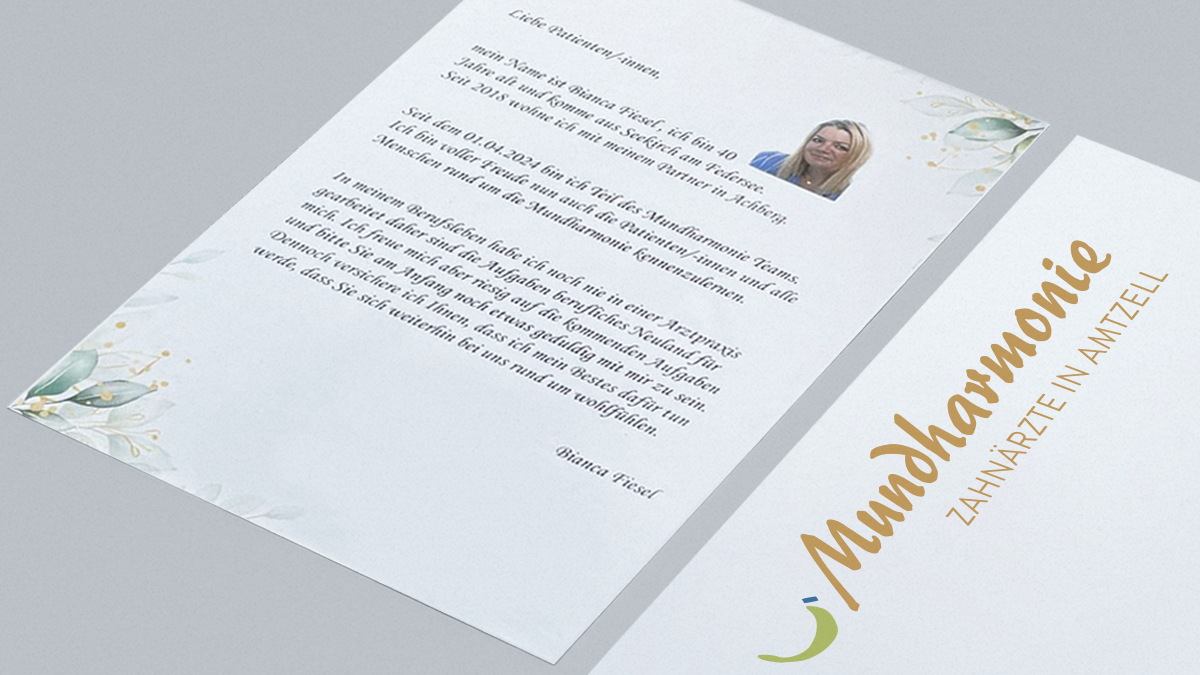 Liebe Patienten/-innen,
mein Name ist Bianca Fiesel , ich bin 40
Jahre alt und komme aus Seekirch am Federsee.
Seit 2018 wohne ich mit meinem Partner in Achberg.
Seit dem 01.04.2024 bin ich Teil des Mundharmonie Teams.
Ich bin voller Freude nun auch die Patienten/-innen und alle
Menschen rund um die Mundharmonie kennenzulernen.
In meinem Berufsleben habe ich noch nie in einer Arztpraxis
gearbeitet daher sind die Aufgaben berufliches Neuland für
mich. Ich freue mich aber riesig auf die kommenden Aufgaben
und bitte Sie am Anfang noch etwas geduldig mit mir zu sein.
Dennoch versichere ich Ihnen, dass ich mein Bestes dafür tun
werde, dass Sie sich weiterhin bei uns rund um wohlfühlen.
Bianca Fiesel
Mundharmonie
ZAHNÄRZTE IN AMTZELL